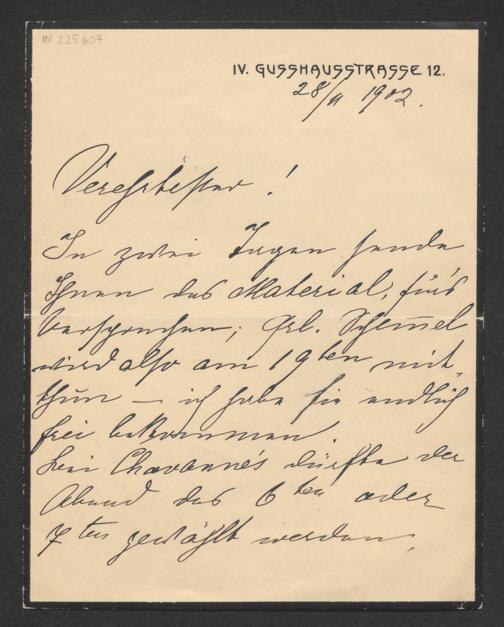 IN 225607
IV. GUSSHAUSSTRASSE 12.
28/II 1902.
Verehrtester!
In zwei Tagen sende
Ihnen das Material, für's
Versprechen; Frl. Schemel
wird also am 19ten mit-
thun – ich habe sie endlich
frei bekommen.
bei Chavanne's dürfte der
Abend des 6ten oder
7ten gewählt werden,